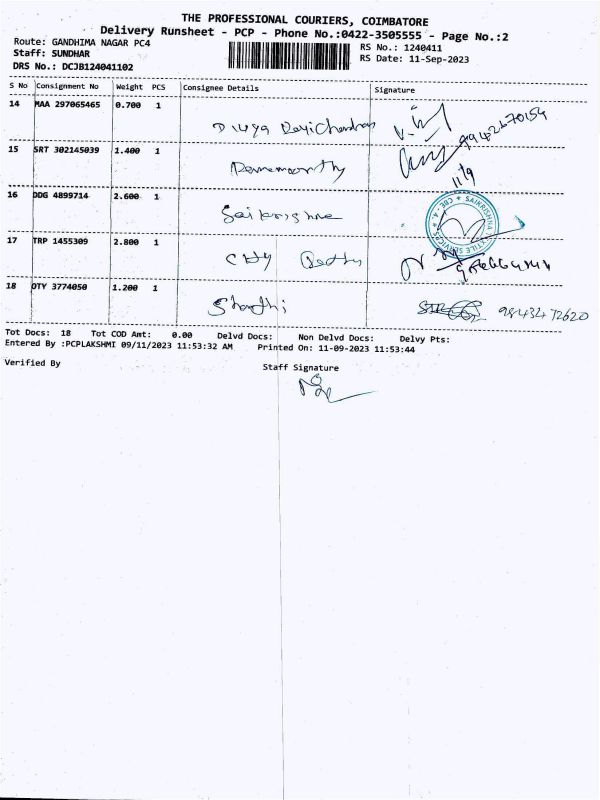 THE PROFESSIONAL COURIERS, COIMBATORE
Delivery Runsheet - PCP - Phone No.:0422-3505555 - Page No.:2
Route: GANDHIMA NAGAR PC4
RS No.: 1240411
Staff: SUNDHAR
RS Date: 11-Sep-2023
DRS No.: DCJB124041102
S No Consignment No Weight PCS Consignee Details Signature
14 MAA 297065465 0.700 1
Divya Ravichandran
15 SRT 302145039 1.400 1
11/9
16 DDG 4899714 2.600 1
Saikrishna
17 TRP 1455309 2.800 1
18 OTY 3774050 1.200 1
Shanthi
Tot Docs: 18 Tot COD Amt: 0.00 Delvd Docs: Non Delvd Docs: Delvy Pts:
Entered By :PCPLAKSHMI 09/11/2023 11:53:32 AM Printed On: 11-09-2023 11:53:44
Verified By
Staff Signature